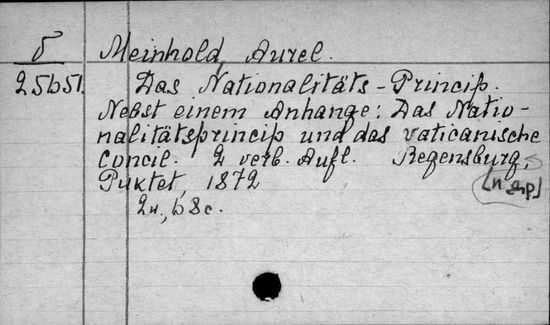 δ Meinhold, Aurel.
25b51. Das Nationalitäts-Princip.
Nebst einem Anhange: Das Natio-
nalitätsprincip und das vaticanische
Concil. 2 verb. Aufl. Regensburg,
Puktet, 1872
2н., 68с.